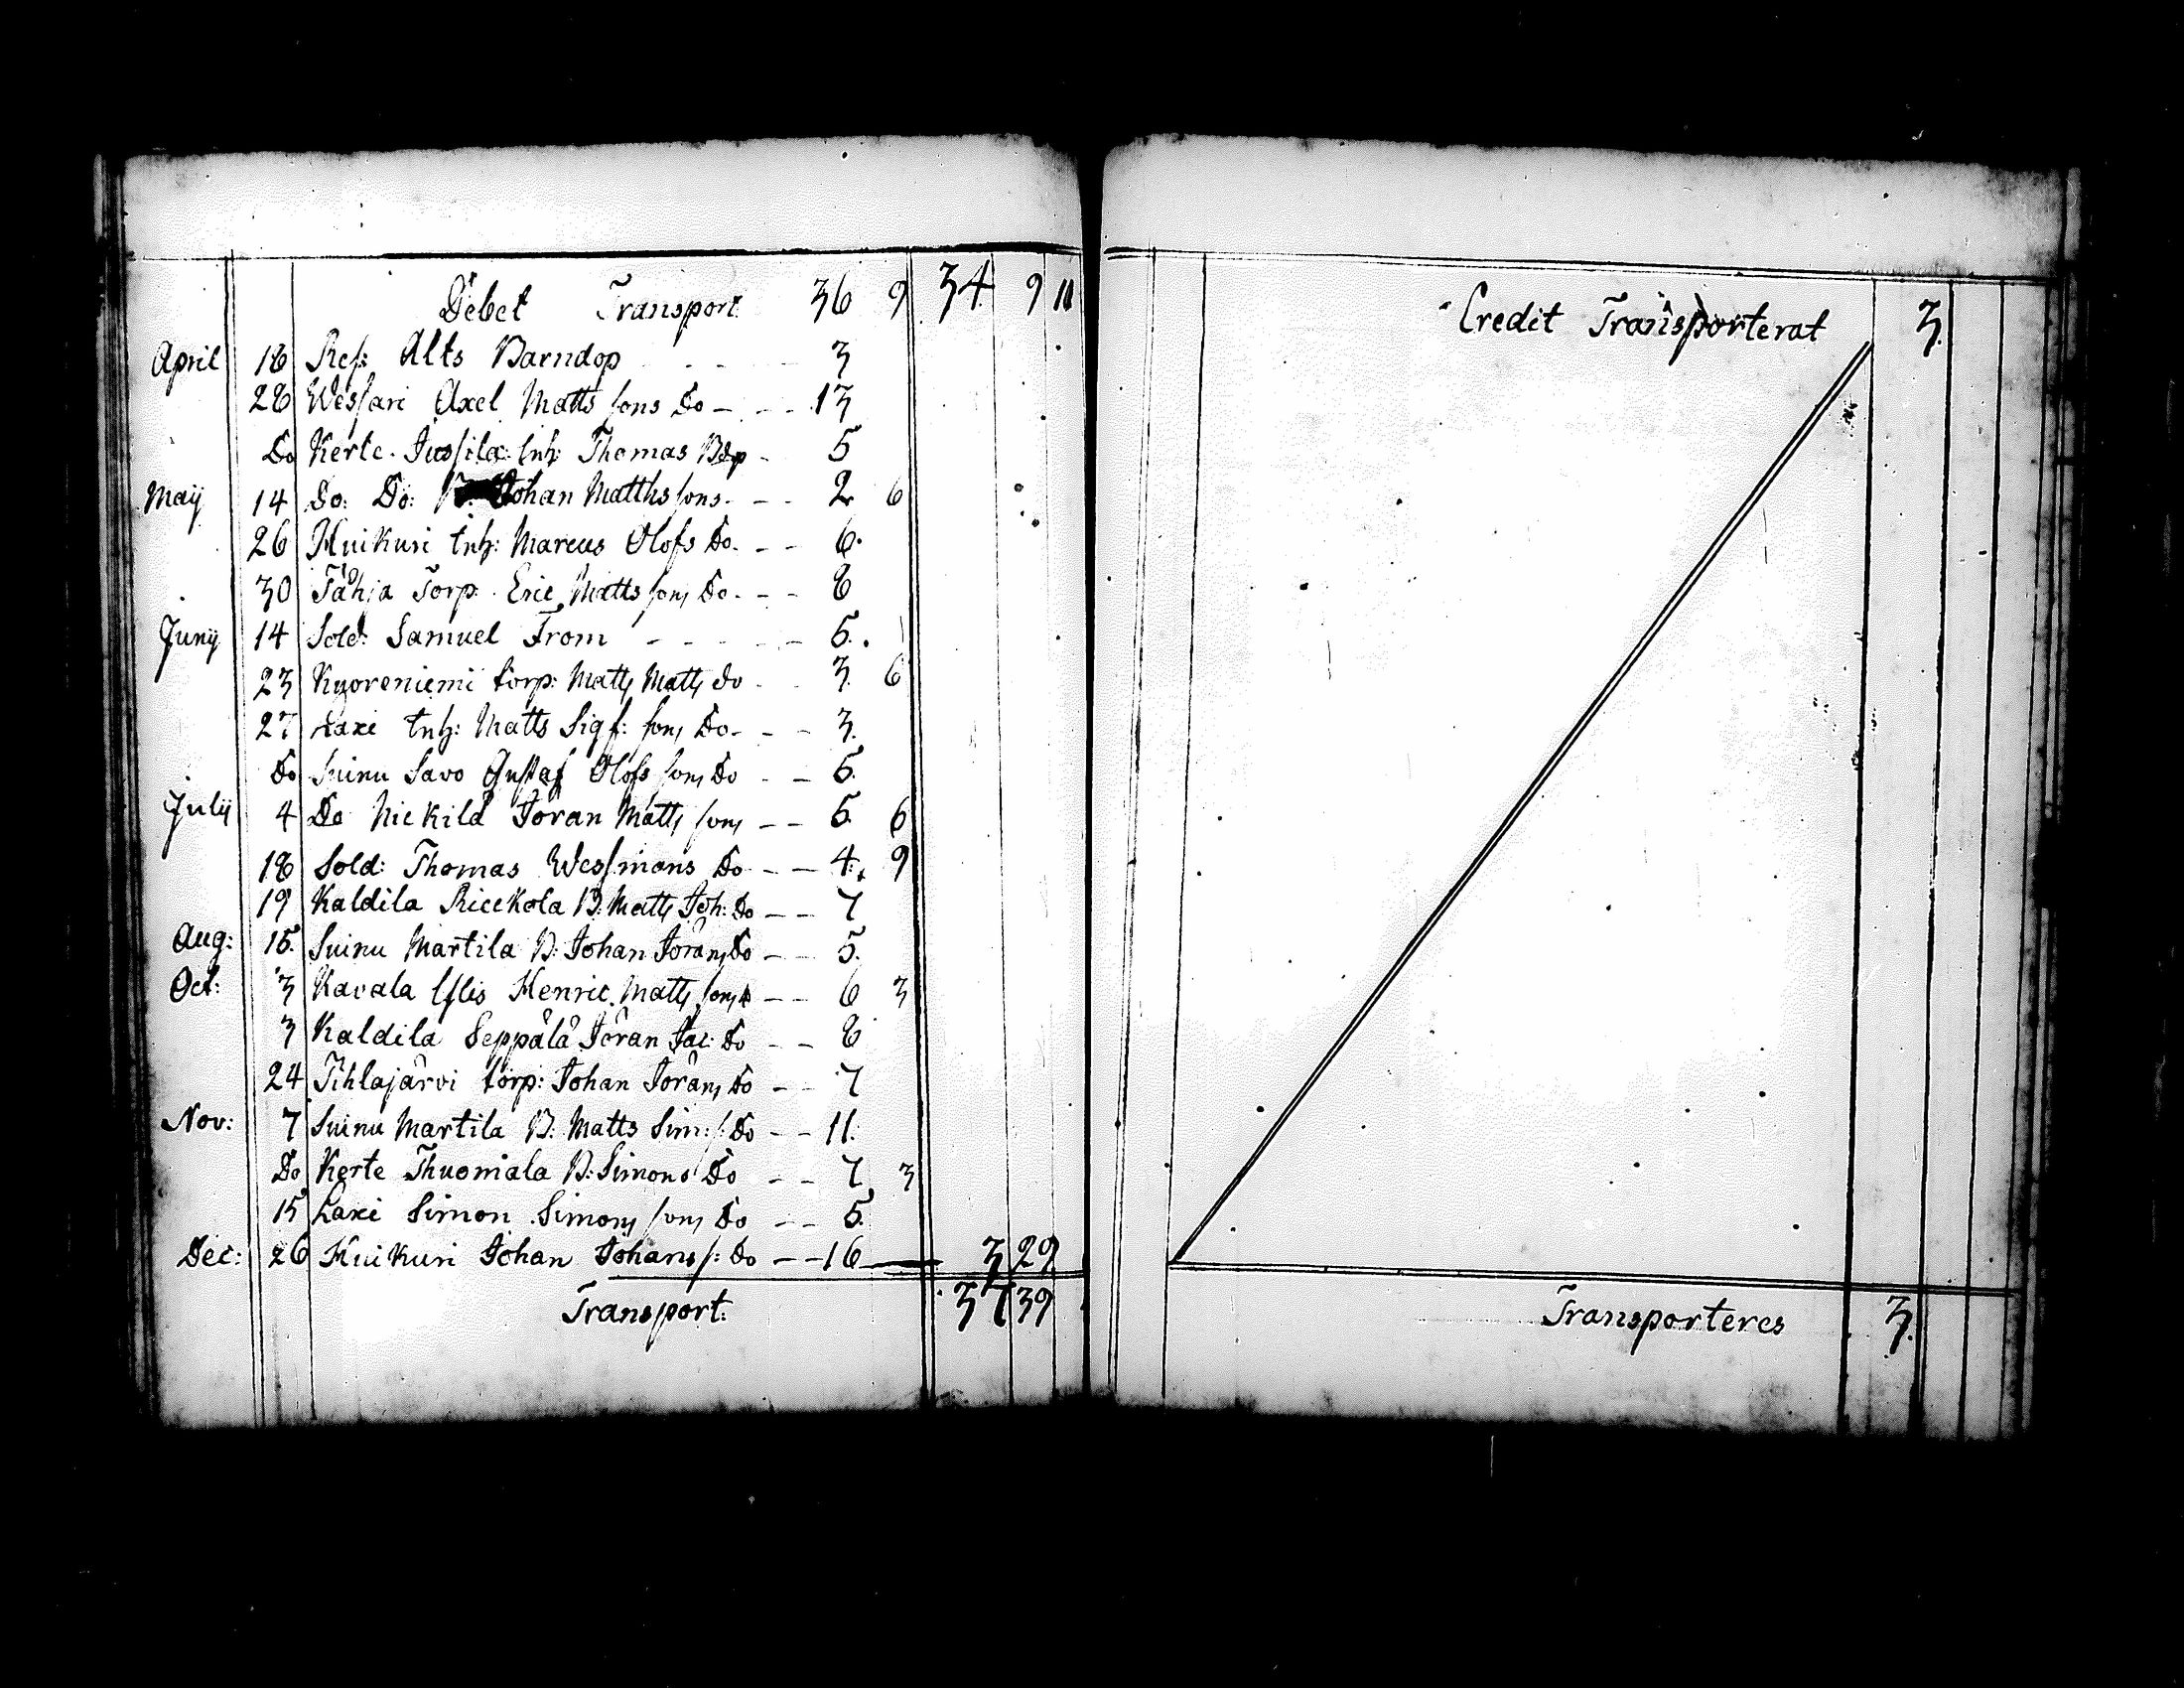 Debet Transport 36 9 34 9 10
April 18 Ref: Alts Barndop - - - 3
28 Wessari Axel Matts sons Do - - - 13
Do Kerte. Jussila: Inh: Thomas Bdp - 5
Maij 14 Do: Do: Johan Matths sons. - - 2 6
26 Huikuri Inh: Marcus Olofs Do. - - 6.
30 Tåhja Torp. Eric Matts sons Do. - - 8
Junij 14 Sold: Samuel From - - - - 5.
23 Kuoreniemi torp: Matts Matts do - - 3. 6
27 Laxi Inh: Matts Sigf: sons Do - - - 3.
Do Suinu Savo Gustaf Olofs sons Do - - 5.
Julij 4 Do Nickilä Jöran Matts sons - - 5. 6
18 Sold: Thomas Wessmans Do - - - 4. 9
19 Kaldila Rieckola B: Matts Joh: Do - - 7
Aug: 15. Suinu Martila B: Johan Jörans Do - - 5.
Oct: 3 Kavala Henric Matts sons - - 6 3
3 Kaldila Seppälä Jöran Jac: Do - - 8
24 Pihlajärvi torp: Johan Jörans Do - - 7
Nov: 7 Suinu Martila B: Matts Sim: s: Do - - 11.
Do Kerte Thuomala B: Simons Do - - 7 3
15 Laxi Simon Simons sons Do - - 5.
Dec: 26 Huikuri Johan Johans s: Do - - 16 3 29
Transport: 37 39
Credit Transporterat 3.
Transporteres 3.